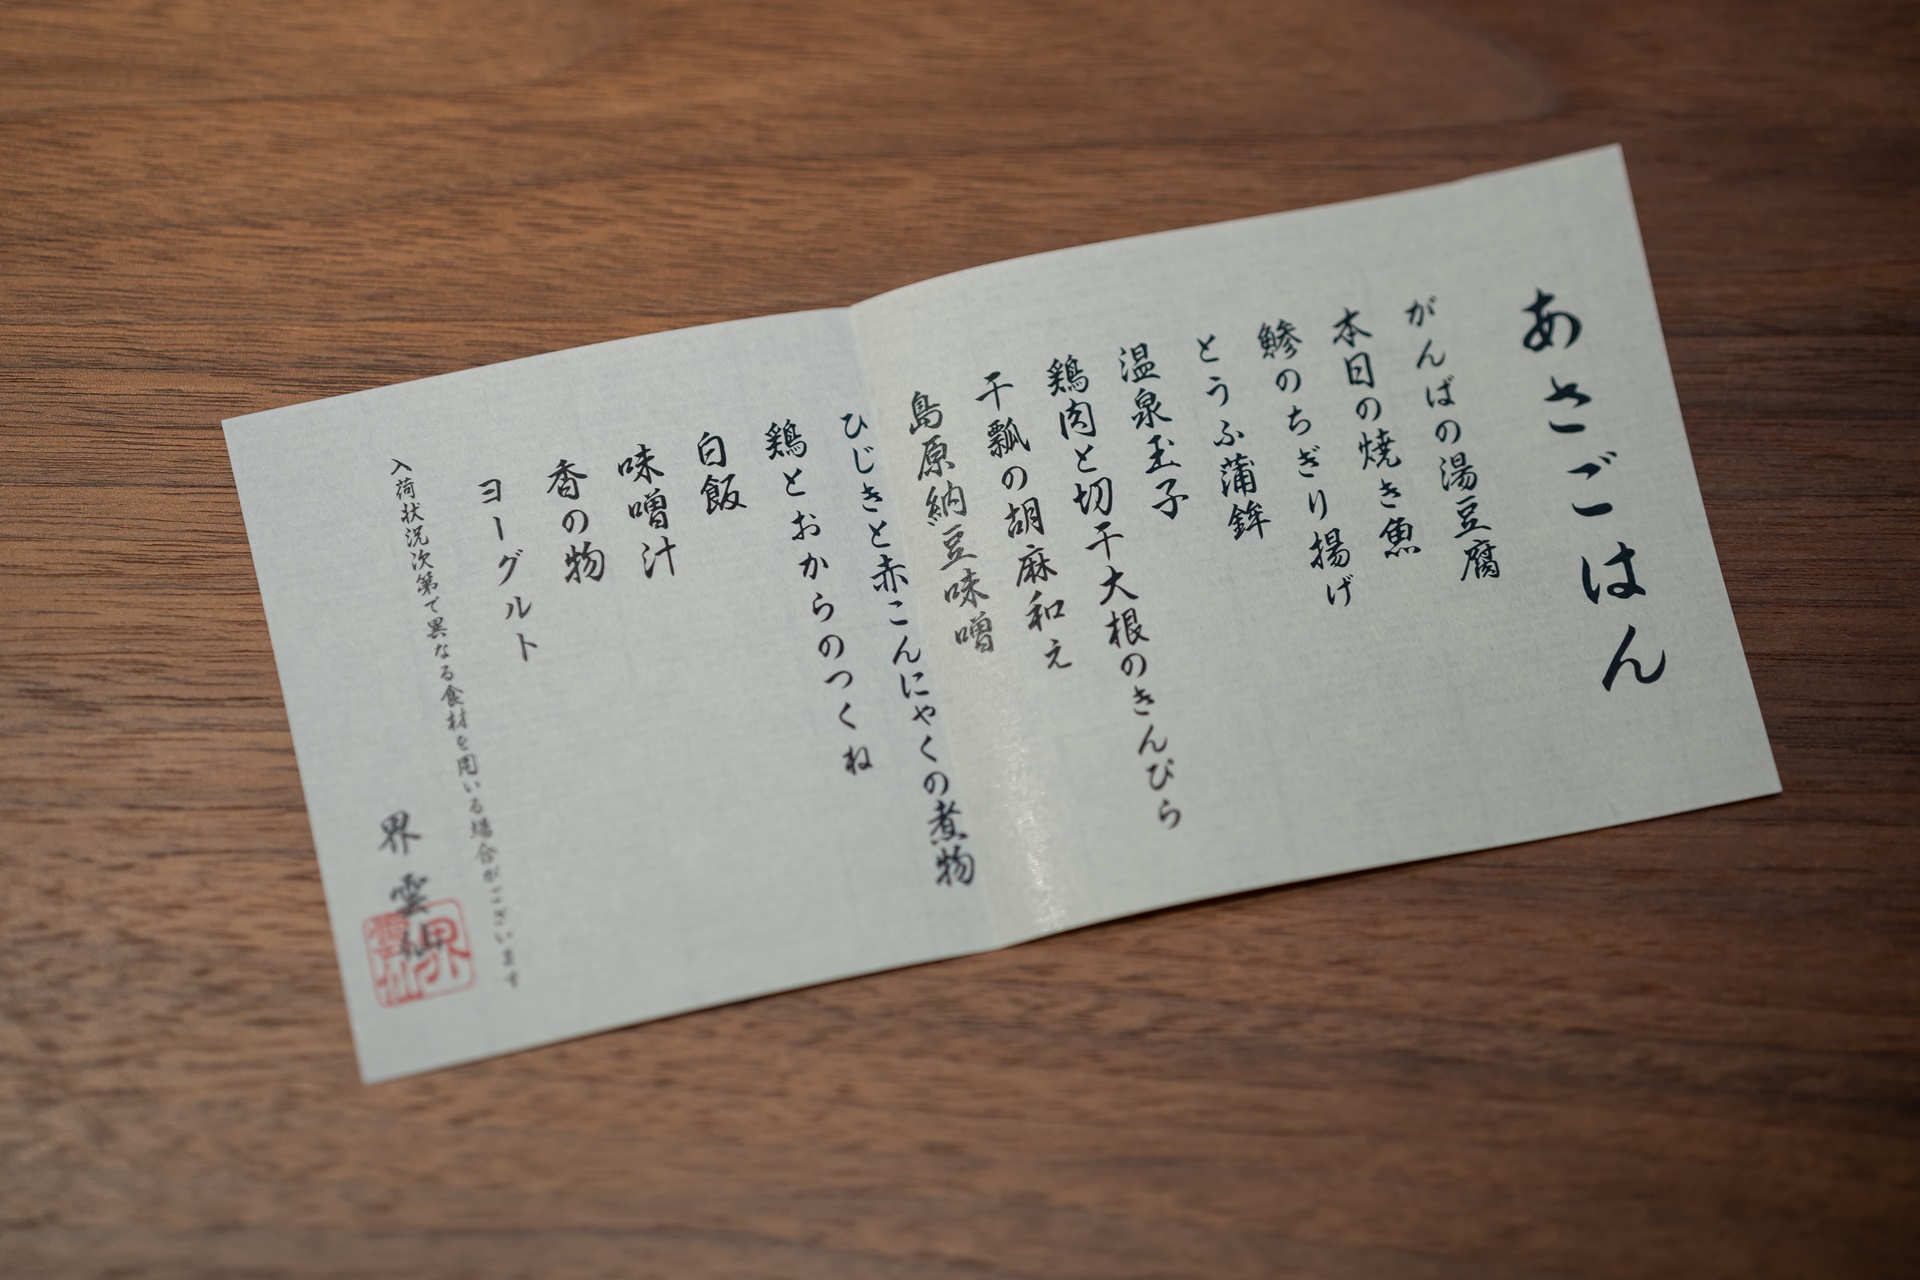 あさごはん
がんばの湯豆腐
本日の焼き魚
鯵のちぎり揚げ
とうふ蒲鉾
温泉玉子
鶏肉と切干大根のきんぴら
干瓢の胡麻和え
島原納豆味噌
ひじきと赤こんにゃくの煮物
鶏とおからのつくね
白飯
味噌汁
香の物
ヨーグルト
入荷状況次第で異なる食材を用いる場合がございます
界 雲仙